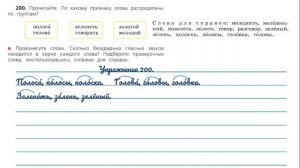 200. Прочитайте. По какому признаку слова распределены по группам?
полоса́ голова́
зеленеть говорить
золотой молодой
Слова для справок: молодость, молоденький, золото, золотце, говор, разговор, зелёный, зелень, полоски, полосы, головка, головы.
Произнесите слова. Сколько безударных гласных звуков находится в корне каждого слова? Подберите проверочные слова, воспользовавшись словами для справок.
Упражнение 200.
Полоса́, по́лосы, поло́ска. Голова́, го́ловы, голо́вка.
Зелене́ть, зе́лень, зелёный.